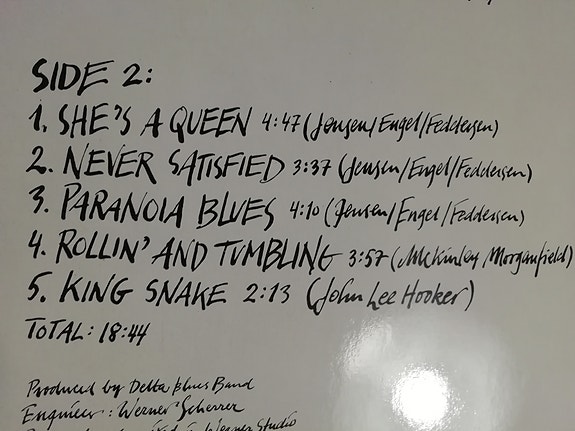 SIDE 2:
1. SHE'S A QUEEN 4:47 (Jensen/Engel/Feddersen)
2. NEVER SATISFIED 3:37 (Jensen/Engel/Feddersen)
3. PARANOIA BLUES 4:10 (Jensen/Engel/Feddersen)
4. ROLLIN' AND TUMBLING 3:57 (McKinley Morganfield)
5. KING SNAKE 2:13 (John Lee Hooker)
TOTAL: 18:44
Produced by Delta Blues Band
Engineer: Werner Scherrer
Werner Studio